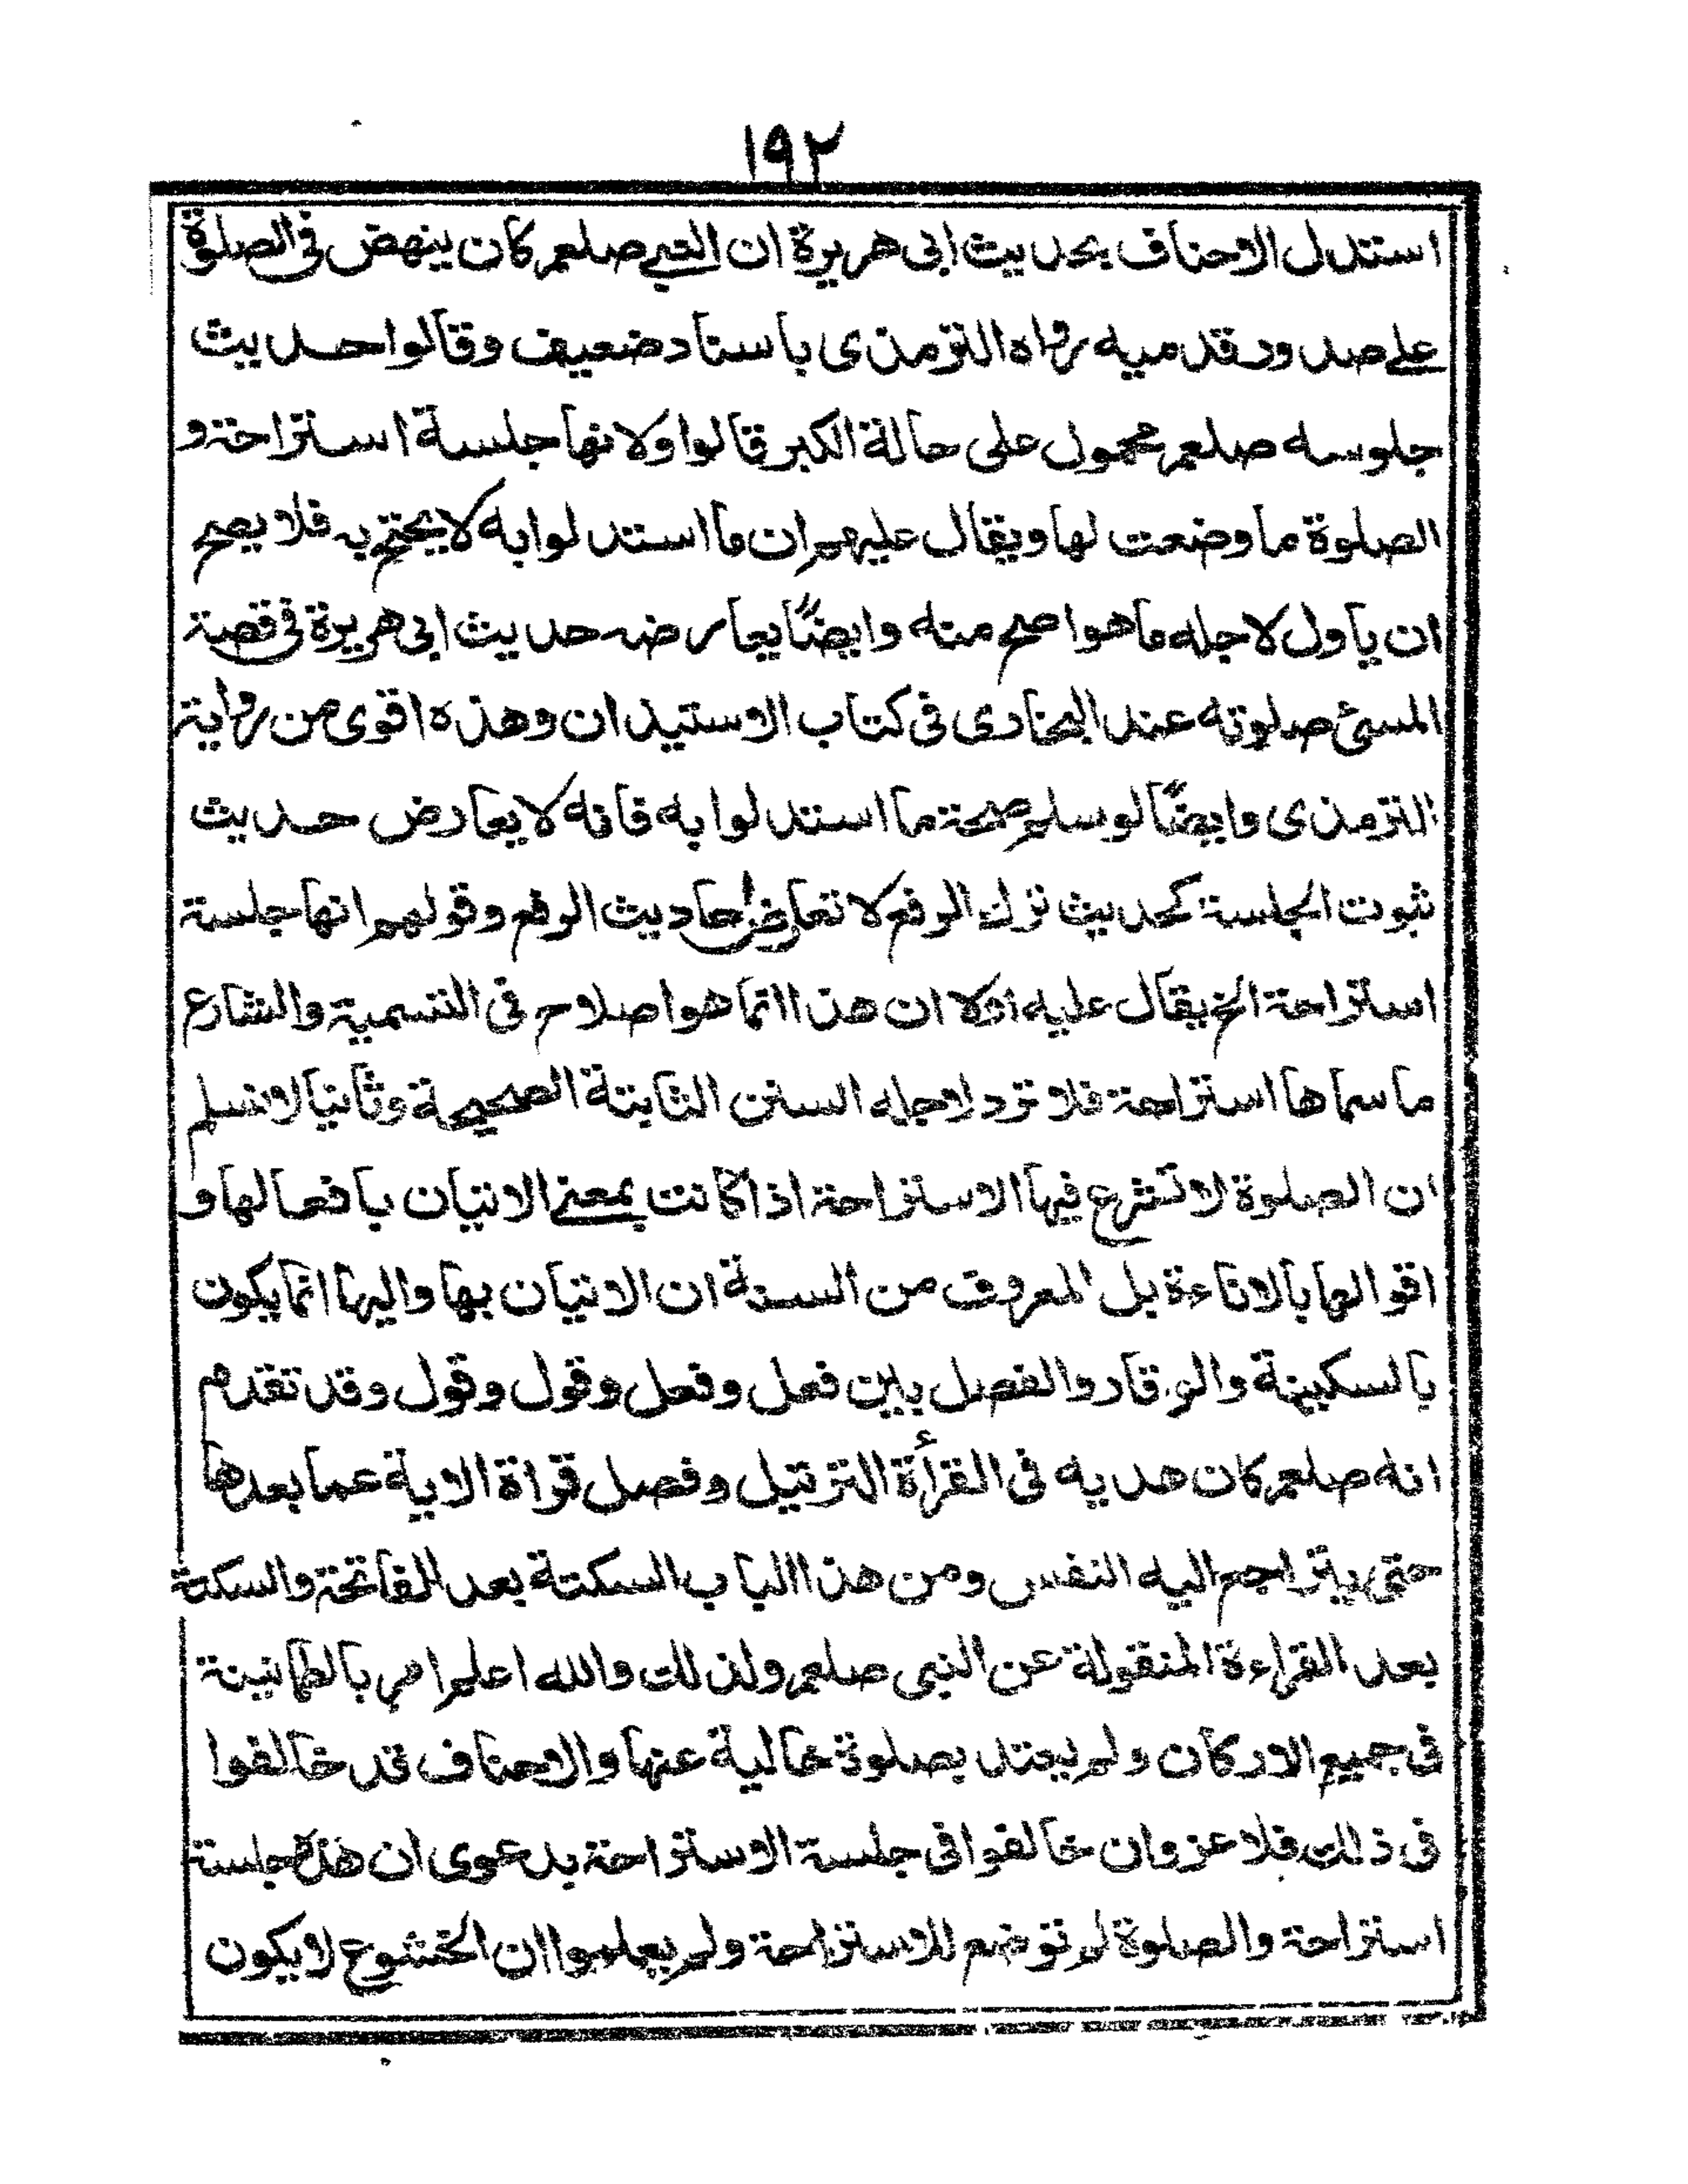 ١٩٢
استدل الاحناف بحديث ابى هريرة ان النبي صلعم كان ينهض فى الصلوة
على صدور قدميه رواه الترمذى باسناد ضعيف وقالوا حديث
جلوسه صلعم محمول على حالة الكبر قالوا ولانها جلسة استراحة و
الصلوة ما وضعت لها ويقال عليهم ان ما استدلوا به لا يحتج به فلا يصح
ان ياول لاجله ما هو اصح منه وايضًا يعارضه حديث ابى هريرة فى قصة
المسئ صلوته عند البخارى فى كتاب الاستيذان وهذه اقوى من رواية
الترمذى وايضًا لو سلم صحة ما استدلوا به فانه لا يعارض حديث
ثبوت الجلسة كحديث ترك الرفع لا تعارض احاديث الرفع وقولهم انها جلسة
استراحة الخ يقال عليه اولا ان هذا انما هو اصلاح فى التسمية والشارع
ما سماها استراحة فلا ترد لاجله السنن الثابتة الصحيحة وثانيا لا نسلم
ان الصلوة لا تشرع فيها الاستراحة اذا كانت بمعنى الاتيان بافعالها و
اقوالها بالاناءة بل المعروف من السنة ان الاتيان بها واليها انما يكون
بالسكينة والوقار والفصل بين فعل وفعل وقول وقول وقد تقدم
انه صلعم كان هديه فى القرأة الترتيل وفصل قراة الاية عما بعدها
حتى يتراجع اليه النفس ومن هذا الباب السكتة بعد الفاتحة والسكتة
بعد القراءة المنقولة عن النبى صلعم ولذلك والله اعلم امر بالطمانينة
فى جميع الاركان ولم يعتد بصلوة خالية عنها والاحناف قد خالفوا
فى ذلك فلا عزوان خالفوا فى جلسة الاستراحة بدعوى ان هذه جلسة
استراحة والصلوة لم توضع للاستراحة ولم يعلموا ان الخشوع لا يكون